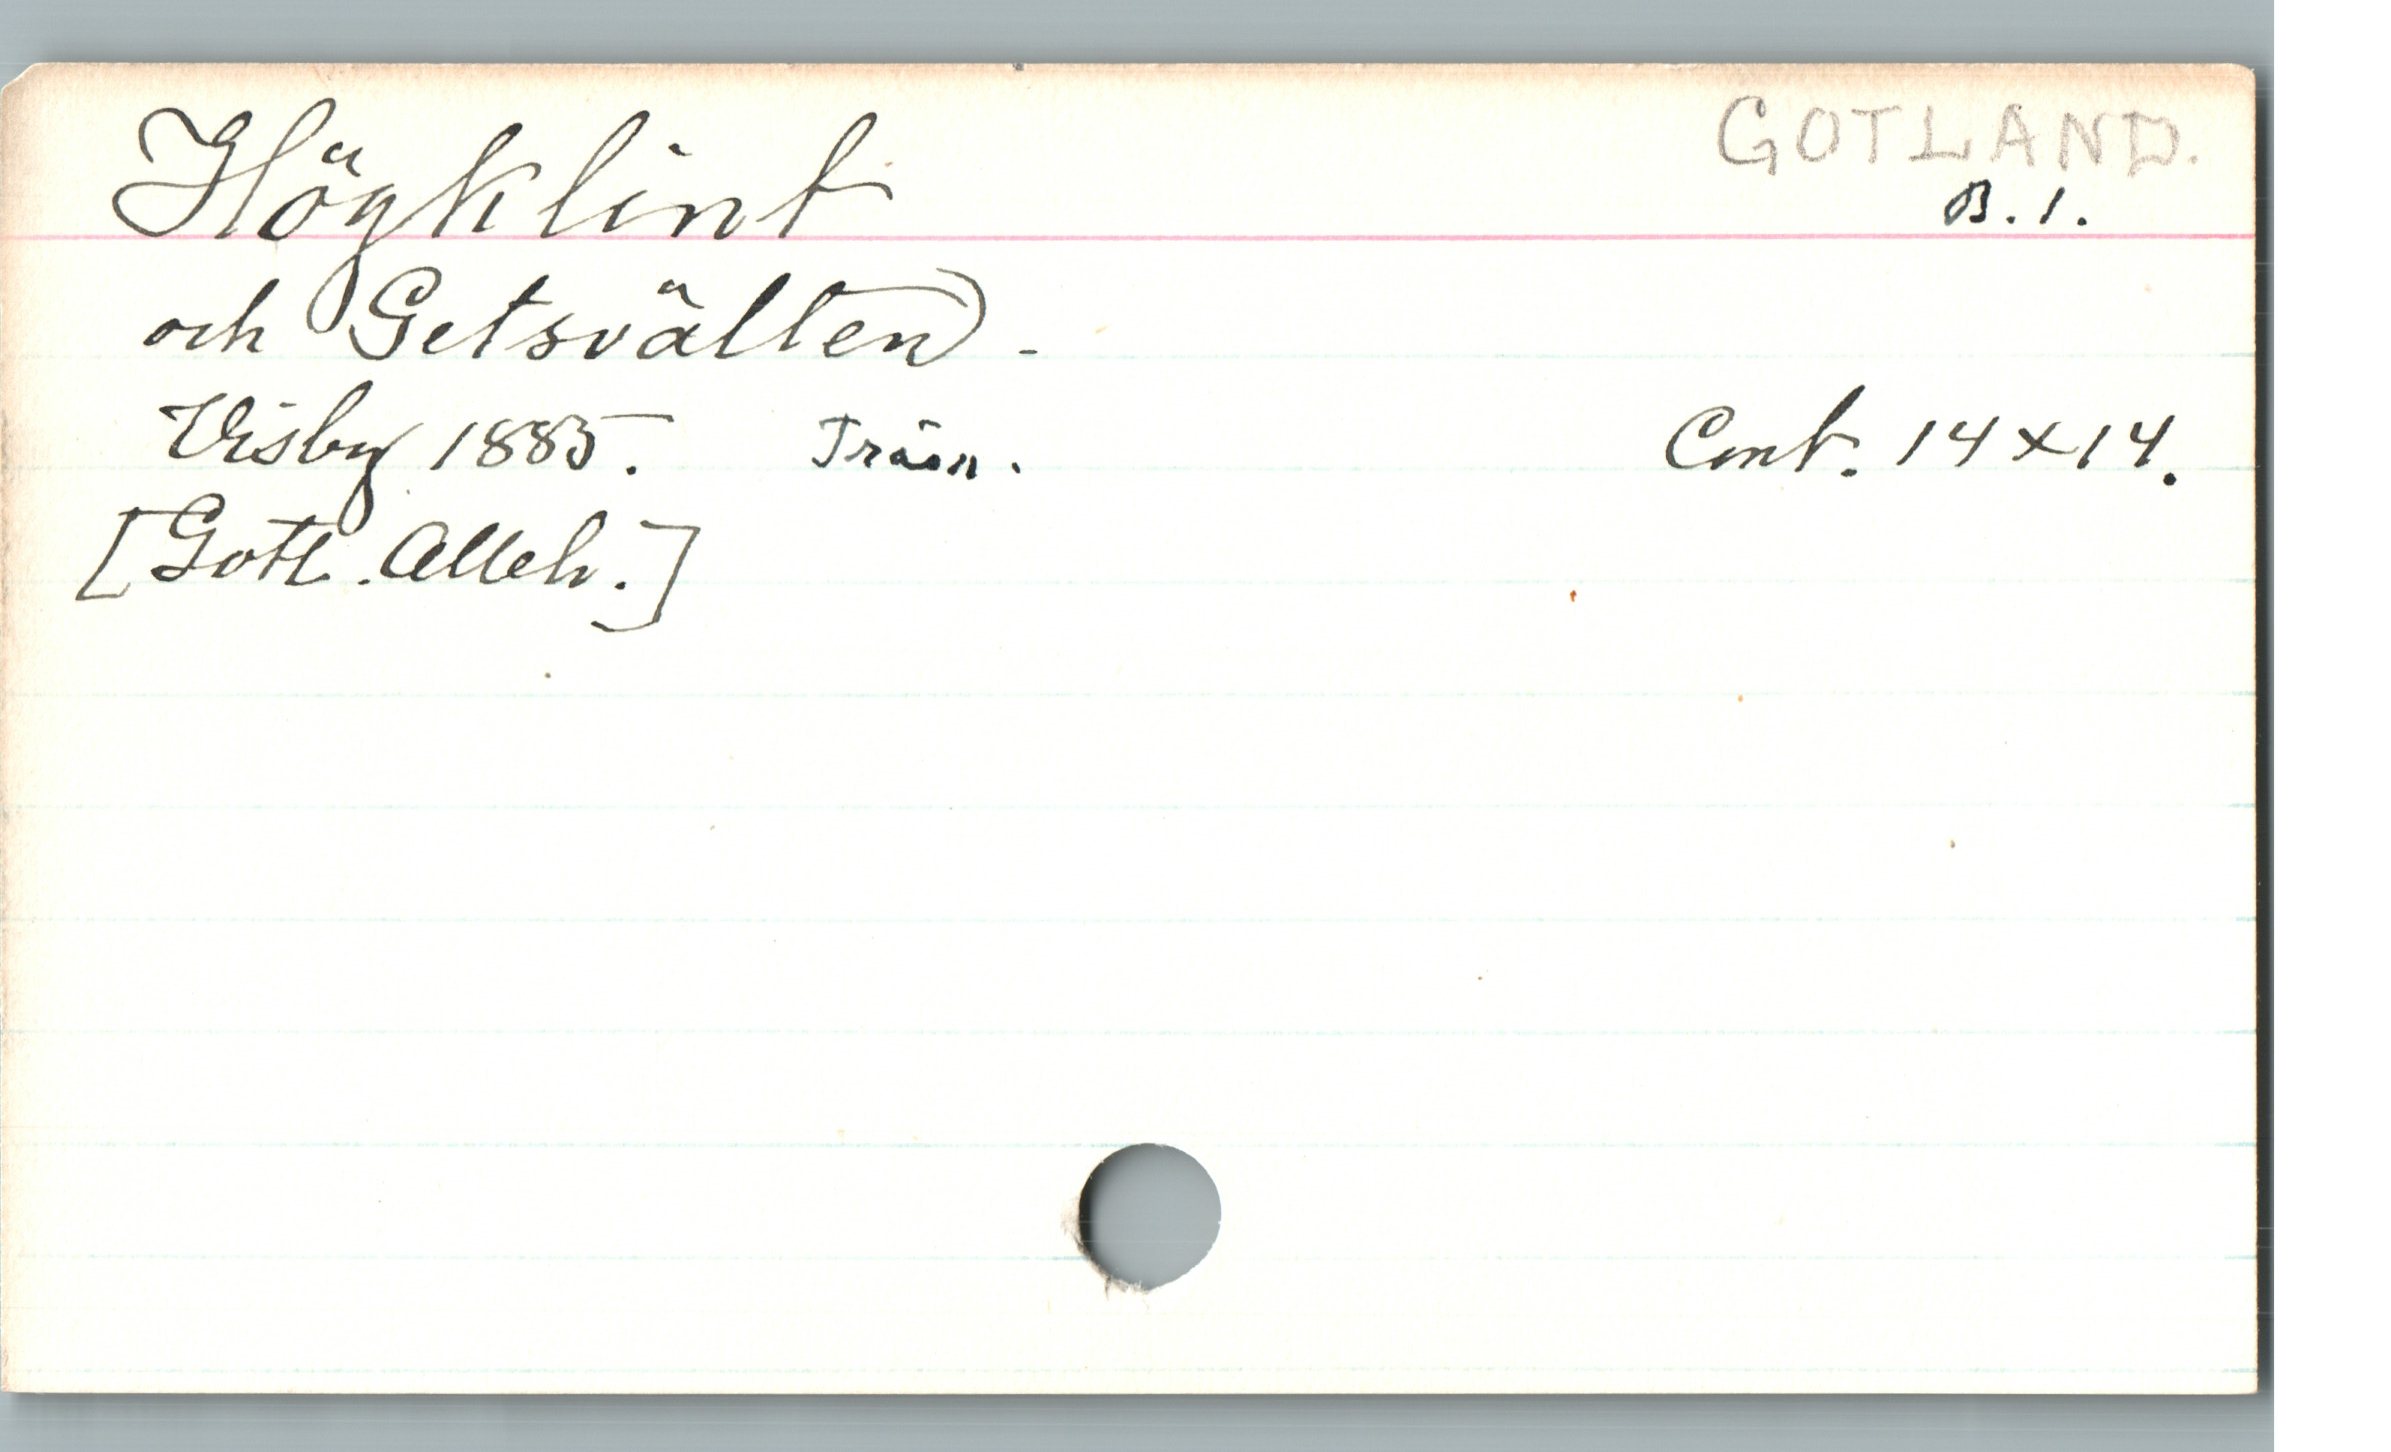 Högklint
GOTLAND.
B. 1.
och Getsvälten -
Visby 1885. Träsn. Cont. 14 x 14.
[Gotl. Alleh.]